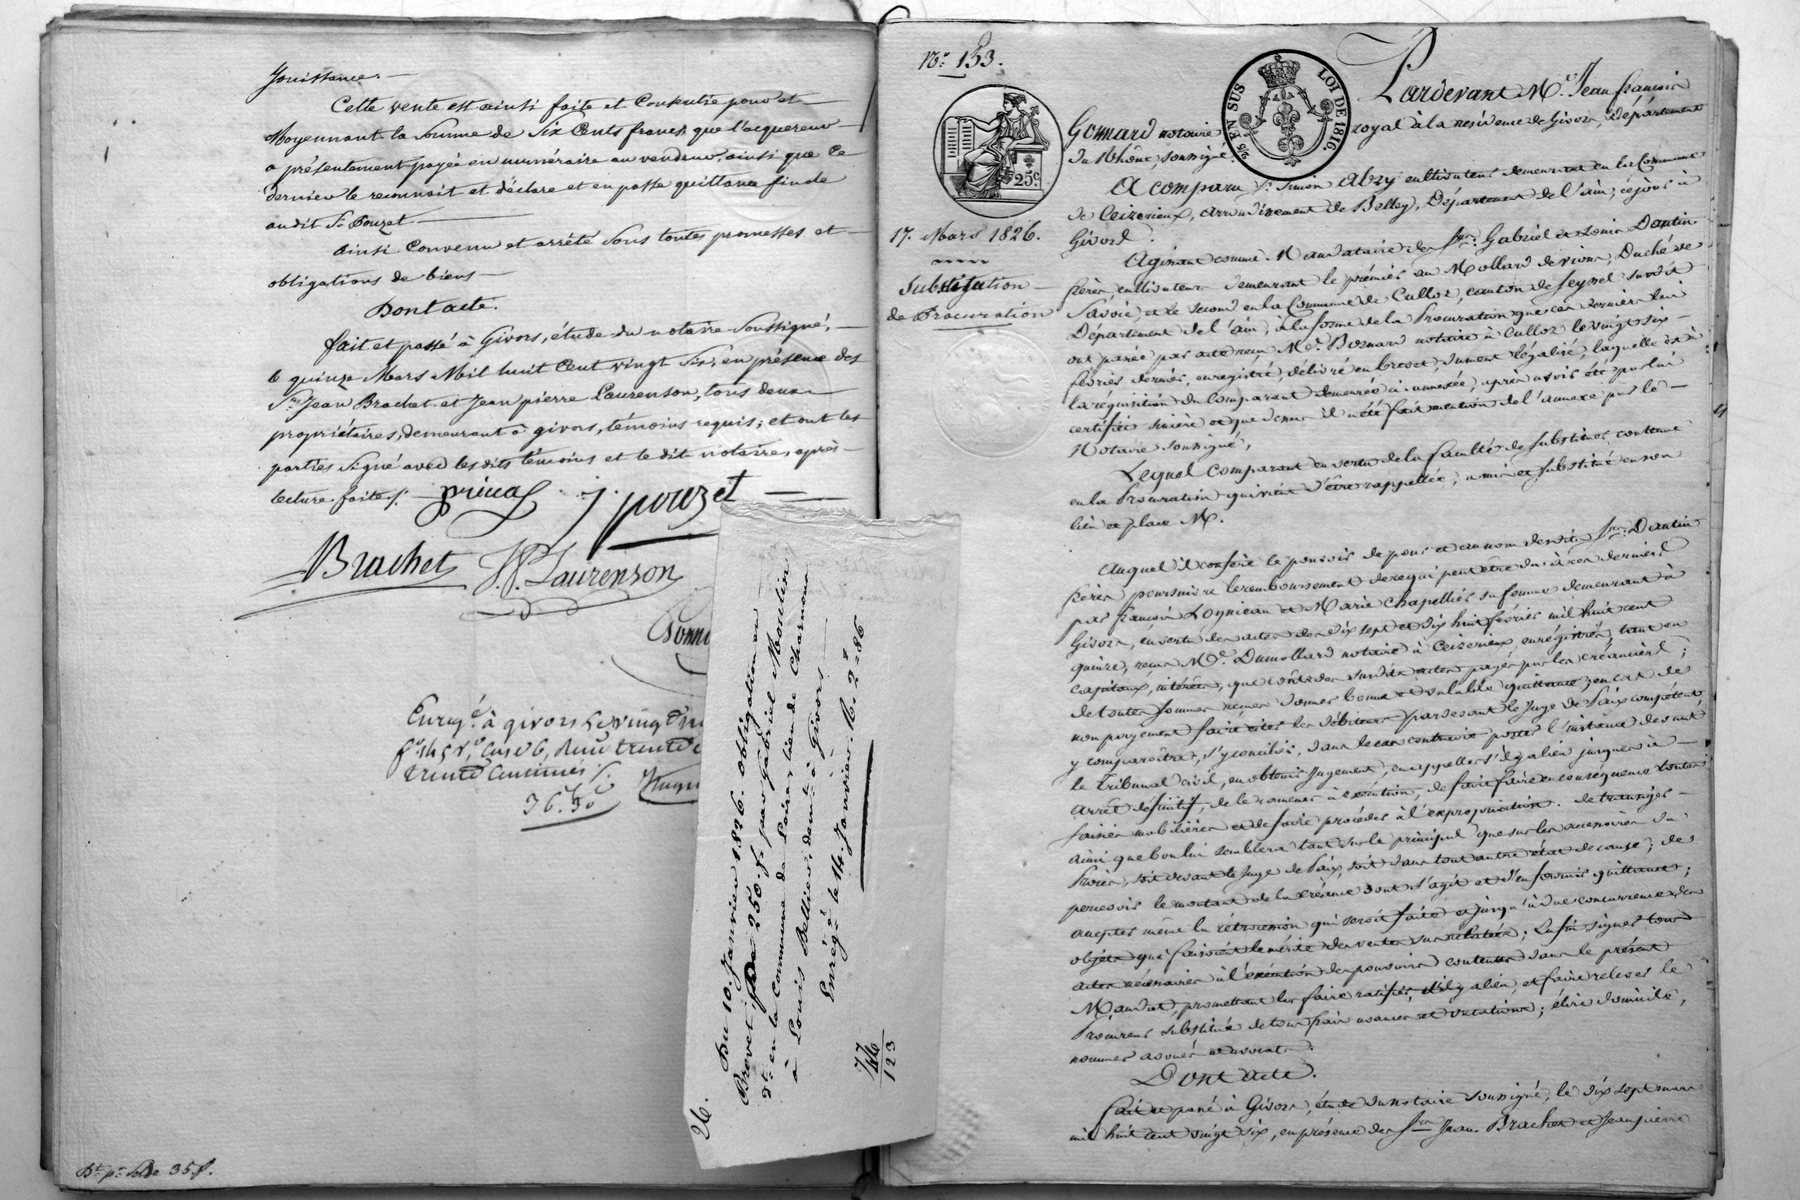 Jouissance.
Cette vente est ainsi faite et consentie pour et
Moyennant la somme de Six Cents francs que l'acquereur
a présentement payée en numéraire au vendeur, ainsi que ce
dernier le reconnait et déclare et en passe quittance finale
audit Sr. Pouzet.
Ainsi convenu et arrêté sous toutes promesses et
obligations de biens
Dont acte.
fait et passé à Givors, étude du notaire Soussigné,
le quinze Mars Mil huit Cent vingt Six, en présence des
Srs Jean Brachet et Jean pierre Laurenson, tous deux
propriétaires, demeurant à givors, témoins requis; et ont les
parties signé avec les dits témoins et le dit notaire, après
lecture faite /.
j pouzet
Brachet J. P. Laurenson
Enregé. à givors le vingt
trente centimes /.
36.30
Bt. pr. Solde 35 f.
26.
Du 10. Janvier 1826. obligation en
Brevet de 250. f. par Gabriel
dt. en la commune de Loire lieu de
à Louis demt. à Givors
Enreg. le 14. Janvier. 16. 2° 86
77
46
123
No. 153.
25c.
2/5 EN SUS
LOI DE 1816.
17. Mars 1826.
Substitution
de Procuration
Pardevant Me. Jean françois
Gomard notaire royal à la résidence de Givors, Département
du Rhône, soussigné.
A comparu Sr. Simon Abry cultivateur demeurant en la Commune
de Ceizerieux, arrondissement de Belley, Département de l'ain; ce jour à
Givors.
Agissant comme Mandataire des Srs. Gabriel et Louis Dantin
frères, cultivateurs demeurant le premier au Mollard de vions, Duché de
Savoie, et le second en la Commune de Culloz, canton de Seyssel susdit
Département de l'ain, à la forme de la Procuration que ces derniers lui
ont passée par acte reçu Me. Bornard notaire à Culloz le vingt six
février dernier, enregistré, délivré en brevet, dument légalisé, laquelle est à
la réquisition du comparant demeurée ci annexée, après avoir été par lui
certifiée sincère et que dessus il a été fait mention de l'annexe par le
Notaire soussigné,
Lequel comparant en vertu de la faculté de substituer contenue
en la Procuration qui vient d'être rappellée, a mis et substitué en son
lieu et place M.
Auquel il confère le pouvoir de pour et au nom desdits Srs. Dantin
frères poursuivre le remboursement de ce qui peut être dû à ces derniers
par françois et Marie Chapellier sa femme demeurant à
Givors, en vertu des actes des dix sept et dix huit février mil huit cent
quinze, reçus Me. Dumollard notaire à Ceizerieux, enrégistrés, tant en
capitaux, intérêts, que
de toutes sommes reçues donner bonne et valable quittance; en cas de
non payement faire citer les débiteurs pardevant le Juge de Paix compétent,
y comparaître, s'y concilier, dans le cas contraire porter l'instance devant
le Tribunal civil, en obtenir Jugement, en appeller s'il y a lieu jusques à
arrêt définitif, de le ramener à exécution, de faire faire en conséquence toutes
saisies mobilières et de faire procéder à l'expropriation. de transiger
ainsi que bon lui semblera tant sur le principal que sur les accessoires du
Procès, soit devant le Juge de Paix, soit dans tout autre état de cause; de
percevoir le montant de la créance dont s'agit et d'en fournir quittance;
acceptes même la rétrocession qui seroit faite et jusqu'à due concurrence des
objets qui faisoient le mérite des ventes sus relatées; Enfin signer tous
actes nécessaires à l'exécution des pouvoirs contenus dans le présent
Mandat, promettant les faire ratifier, s'il y a lieu, et faire relever le
Procureur substitué de tous frais avances et vacations; élire domicile,
nommer avoués et avocats.
Dont acte.
Fait et passé à Givors, étude du notaire soussigné, le dix sept mars
mil huit cent vingt six, en présence des Srs Jean Brachet et Jean pierre